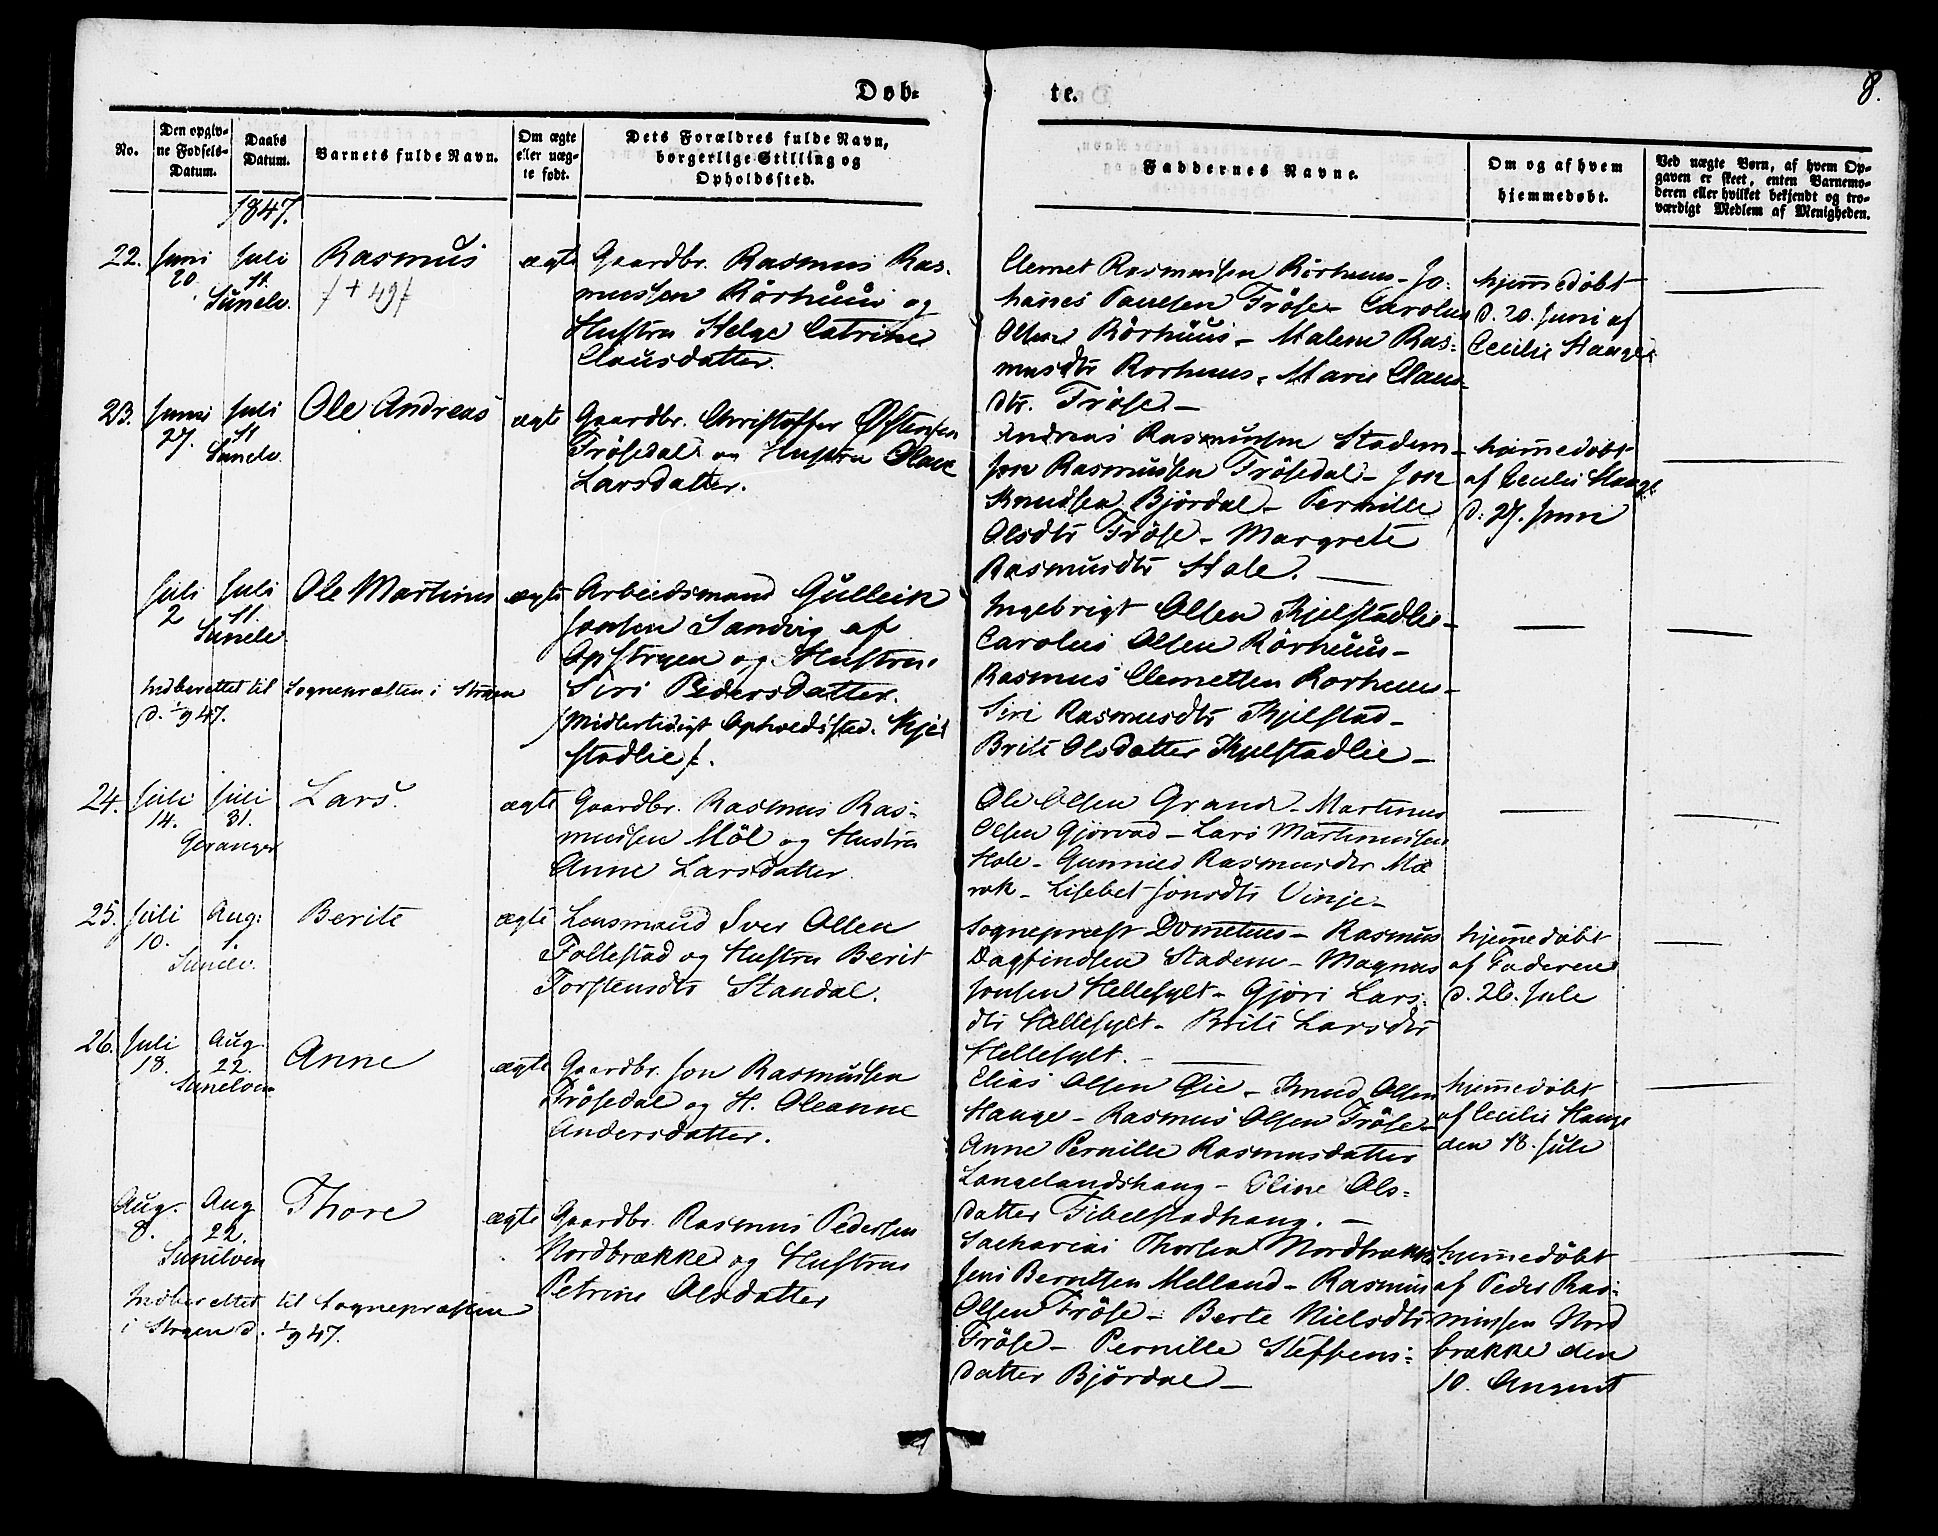 Døb-
te.
8.
No.
Den opgiv-
ne Fødsels-
Datum.
Daabs
Datum.
Barnets fulde Navn.
Om ægte
eller uæg-
te født.
Dets Forældres fulde Navn,
borgerlige Stilling og
Opholdssted.
Faddernes Navne.
Om og af hvem
hjemmedøbt.
Ved uægte Børn, af hvem Op-
gaven er skeet, enten Barnemo-
deren eller hvilket bekjendt og tro-
værdigt Medlem af Menigheden.
1847.
22.
Juni
20
Juli
11.
Sunelv.
Rasmus
/ + 49 /
ægte
Gaardbr. Rasmus Ras-
mussen Rörhuus og
Hustru Helge Catrine
Clausdatter.
Clemet Rasmussen Rörhuus - Jo-
hanes Paulsen Fröse - Carolus
Olsen Rörhuus - Malene Ras-
musdtr Rorhuus - Marie Claus-
dtr. Fröse -
hjemedöbt
d. 20. Juni af
Cecilie Hauge
23.
Juni
27.
Juli
11
Sunelv.
Ole Andreas
ægte
Gaardbr. Christoffer Østensen
Frösedal og Hustru Olave
Larsdatter.
Andreas Rasmussen Stadem -
Jon Rasmussen Frösedal - Jon
Knudsen Björdal - Pernille
Olsdtr Fröse - Margrete
Rasmusdtr Hole.
hjemedöbt
af Cecilie Hauge
d. 27. Juni
Juli
2
Juli
11.
Sunelv
Ole Martinus
ægte
Arbeidsmand Gulleik
Jonsen Sandvig af
Opstryen og Hustru
Siri Pedersdatter.
/Midlertidigt Opholdssted. Kjel
stadlie/.
Indberettet til Sognepræsten i Stryen
d. 1/9 47.
Ingebrigt Olsen Kjelstadlie -
Carolus Olsen Rörhuus -
Rasmus Clemetsen Rorhuus -
Siri Rasmusdtr Kjelstad -
Brite Olsdatter Kjelstadlie -
24.
Juli
14.
Juli
31.
Geranger
Lars.
ægte
Gaardbr. Rasmus Ras-
mussen Möl og Hustru
Anne Larsdatter.
Ole Olsen Grande - Martinus
Olsen Gjörvad - Lars Martinussen
Hole - Gunnild Rasmusdtr Mæ
rok - Lisebet Jonsdtr Vinje -
25.
Juli
10.
Aug:
1.
Sunelv.
Berite
ægte
Lensmand Iver Olsen
Follestad og Hustru Berit
Torstensdtr Standal.
Sognepræst Dometius - Rasmus
Dagfindsen Stadem - Magnus
Jonsen Hellesylt - Gjöri Lars-
dtr Hellesylt - Brite Larsdtr
Hellesylt. -
hjemedöbt
af Faderen
d. 26. Juli
26.
Juli
18.
Aug.
22.
Sunelven
Anne
ægte
Gaardbr. Jon Rasmussen
Frösedal og H. Oleanne
Andersdatter.
Elias Olsen Øie - Knud Olsen
Hauge - Rasmus Olsen Fröse -
Anne Pernille Rasmusdatter
Langelandshaug - Eline Ols-
datter Fibelstadhaug. -
hjemedöbt
af Cecilie Hauge
den 18. Juli
Aug.
8.
Aug
22.
Sunelven
Thore
ægte
Gaardbr. Rasmus Pedersen
Nordbrække og Hustru
Petrine Olsdatter
Indberettet til Sognepræsten
i Stryen d. 1/9 47.
Sacharias Thorsen Nordbrække
Jens Berntsen Melland - Rasmus
Olsen Fröse - Berte Nielsdtr
Fröse - Pernille Steffens-
datter Björdal -
hjemedöbt
af Peder Ras-
mussen Nord
brække den
10. August